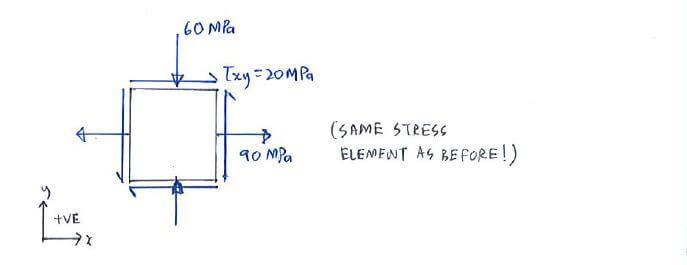 60 MPa
τxy = 20MPa
90 MPa
(SAME STRESS
ELEMENT AS BEFORE!)
y
+VE
x